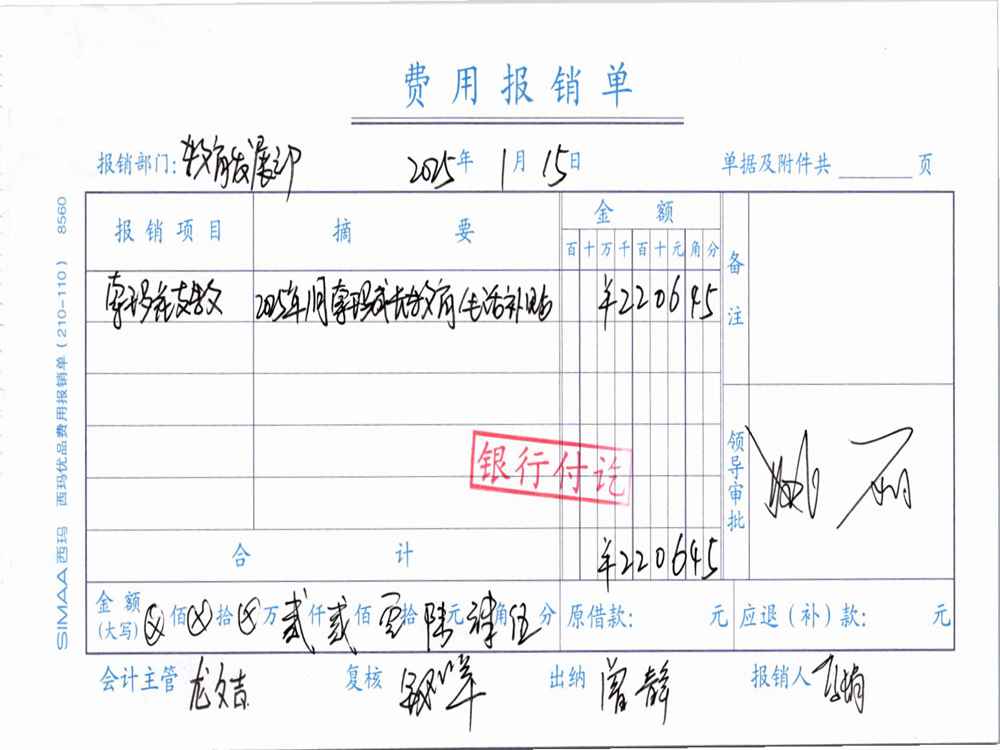 费用报销单
报销部门: 教育发展部 2025年 1月 15日 单据及附件共 页
报销项目 摘要 金额 备注
百十万千百十元角分
支教 2025年1月 生活补贴 ¥220645
银行付讫
领导审批
合计 ¥220645
金额(大写) ⊗佰⊗拾⊗万贰仟贰佰零拾陆元肆角伍分 原借款: 元 应退(补)款: 元
会计主管 龙文吉 复核 出纳 曾静 报销人
SIMAA西玛 西玛优品费用报销单(210-110) 8560